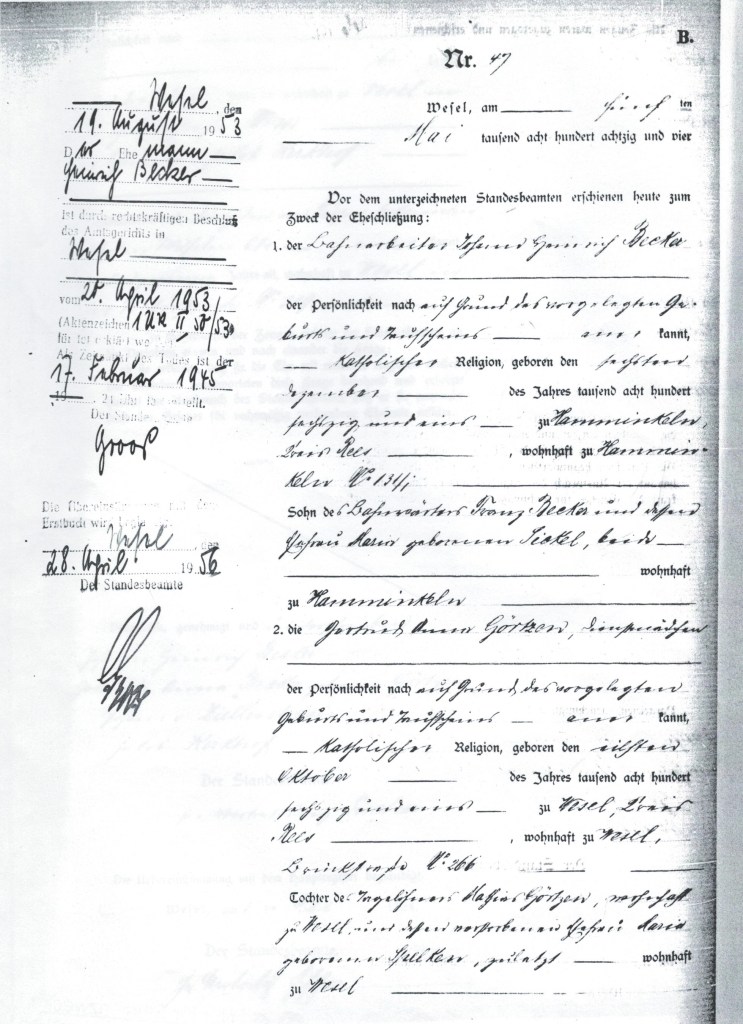 B.
Nr. 47
Wesel, am fünf ten
Mai tausend acht hundert achtzig und vier
Vor dem unterzeichneten Standesbeamten erschienen heute zum
Zweck der Eheschließung:
1. der Bahnarbeiter Johann Heinrich Becker
der Persönlichkeit nach auf Grund des vorgelegten Ge-
burts und Taufscheins aner kannt,
Katholischer Religion, geboren den sechsten
Dezember des Jahres tausend acht hundert
sechszig und eins zu Hamminkeln,
Kreis Rees , wohnhaft zu Hammin-
keln No 134/1
Sohn des Bahnwärters Franz Becker und dessen
Ehefrau Maria geborenen Sickel, beide
wohnhaft
zu Hamminkeln
2. die Gertrud Anna Görtzen, Dienstmädchen
der Persönlichkeit nach auf Grund des vorgelegten
Geburts und Taufscheins aner kannt,
Katholischer Religion, geboren den eilften
Oktober des Jahres tausend acht hundert
sechszig und eins zu Wesel, Kreis
Rees , wohnhaft zu Wesel,
Brückstraße No 266
Tochter des Tagelöhners Mathias Görtzen, wohnhaft
zu Wesel und dessen verstorbenen Ehefrau Maria
geborenen , zuletzt wohnhaft
zu Wesel
Wesel, den
19. August 1953
Der Ehemann
Heinrich Becker
ist durch rechtskräftigen Beschluß
des Amtsgerichts in
Wesel
vom 20. April 1953
(Aktenzeichen 1 UR II 50/53)
für tot erklärt wo
Als Zeitpunkt des Todes ist der
17. Februar 1945
19 , 24 Uhr festgestellt.
Der Standes
Groos
Die Übereinstimmung mit dem
Erstbuch wird
Wesel, den
28. April 1956
Der Standesbeamte